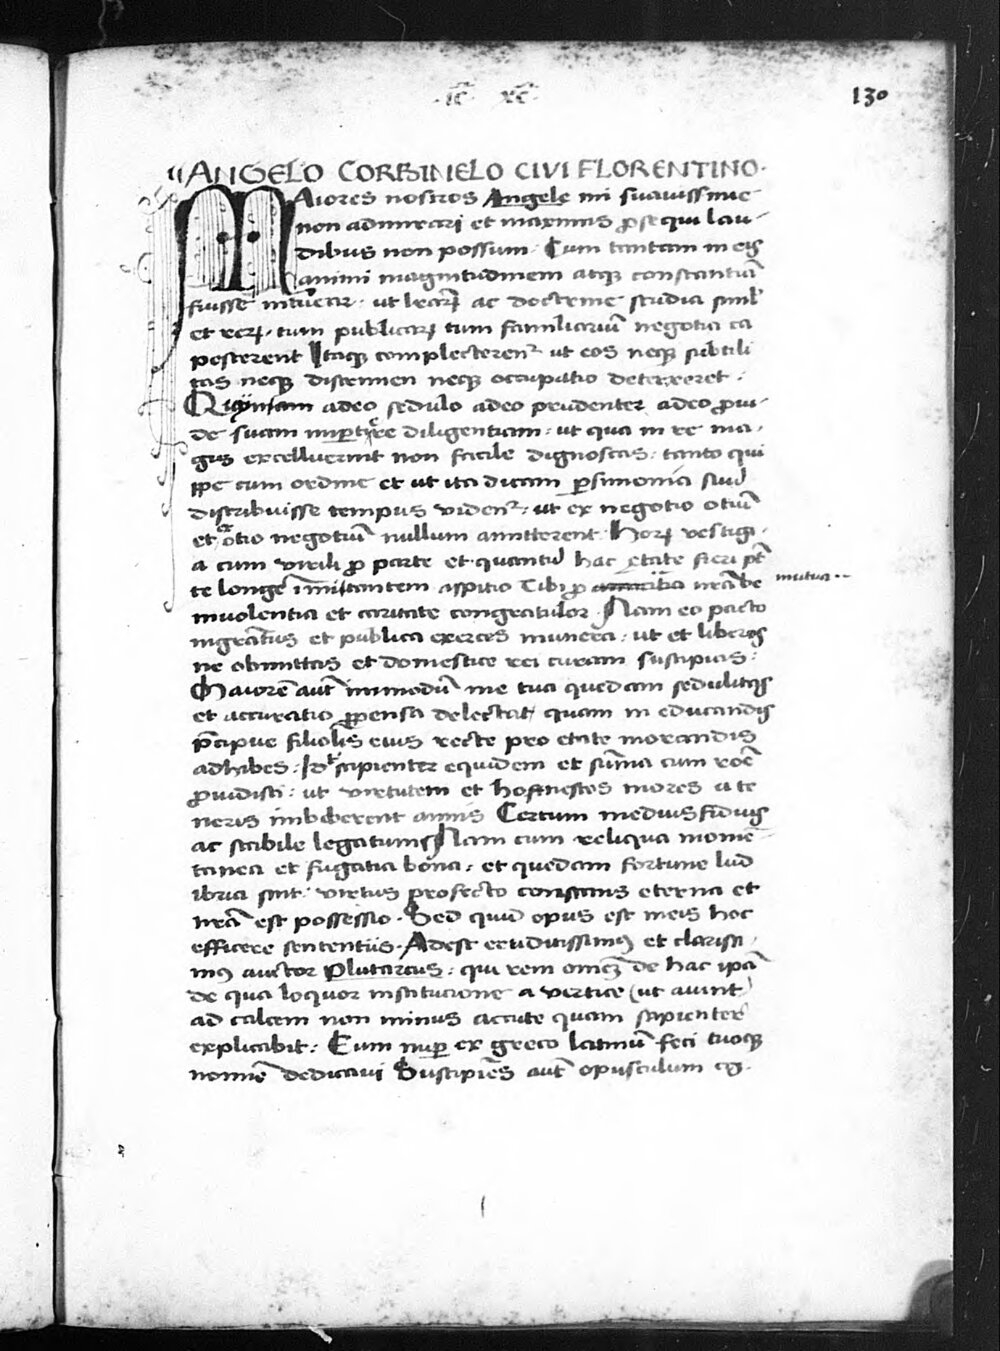 ·ic̄ xc̄·
130
ANGELO CORBINELO CIVI FLORENTINO·
MAiores nostros Angele mi suavissime
non admirari et maximis ꝓsequi lau-
dibus non possum· Cum tantam in eis
animi magnitudinem atqꝫ constantiā
fuisse intuear· ut lr̄arꝝ ac doctrine studia siml̓
et rerꝝ· tum publicarꝝ tum familiariū negotia ca
pesserent Itaqꝫ complecterent᷑ ut eos neqꝫ subtili
tas neqꝫ discrimen neqꝫ occupatio deterreret·
Quiniam adeo sedulo adeo prudenter adeo ꝓui-
de suam imꝑtire diligentiam· ut qua in re ma-
gis excelluerint non facile dignoscas· tanto qui
ppe cum ordine et ut ita dicam ꝑsimonia
distribuisse tempus videnť· ut ex negotio otiū
et otio negotiū nullum amitterent· Horꝝ vestigi-
a cum virili ꝓ parte et quantū hac etate fieri pt̄
te longe īmitantem aspitio Tibi ꝓ nr̄a be
mutua··
nivolentia et caritate congratulor· Nam eo pacto
et publica exerces munera· ut et liberos
ne obmittas et domestice rei curam suscipias:
Maiorē aut̄ inmodū me tua quedam
et accuratio ꝓpensa delectat quam in educandis
p̄cipue filiolis eius recte pro etate morandis
adhibes: Id sapienter equidem et sūma cum roē
ꝓuidisti: ut virtutem et honestos mores a te
neris imbiberent annis Certum mediusfidius
ac stabile legatum Nam cum reliqua momē-
tanea et fugatia bona: et quedam fortune lud
ibria sint virtus profecto constans eterna et
nr̄a est possessio· Sed quid opus est meis hoc
efficere sententiis· Adest eruditissimꝰ et clarissi-
mꝰ auctor Plutarcus: qui rem omnē de hac ipā
de qua loquor institucione a vertice (ut aiunt)
ad calcem non minus accute quam sapienter
explicabit: Eum nuꝑ ex greco latinū feci tuoqꝫ
nomīe dedicavi Suscipiēs aut̄ opusculum